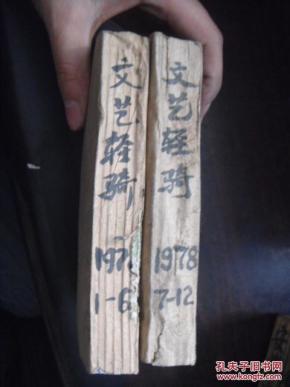 文艺轻骑
197
1-6
文艺轻骑
1978
7-12
孔夫子旧书网